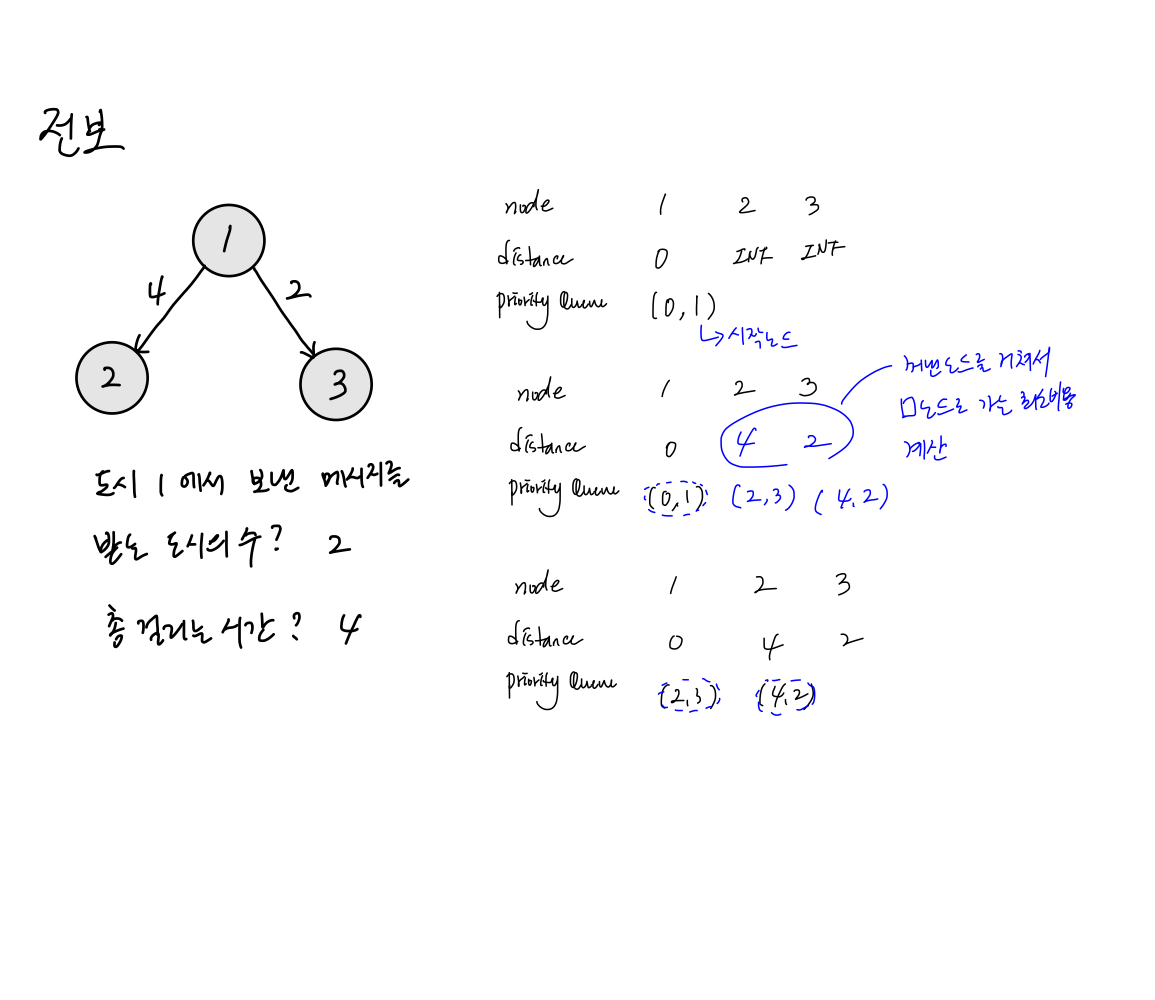 전보
1
4 2
2 3
도시 1 에서 보낸 메시지를
받는 도시의 수? 2
총 걸리는 시간? 4
node 1 2 3
distance 0 INF INF
priority Queue (0,1)
↳시작노드
node 1 2 3
distance 0 4 2
priority Queue (0,1) (2,3) (4,2)
1번노드를 거쳐서
□노드로 가는 최소비용
계산
node 1 2 3
distance 0 4 2
priority Queue (2,3) (4,2)